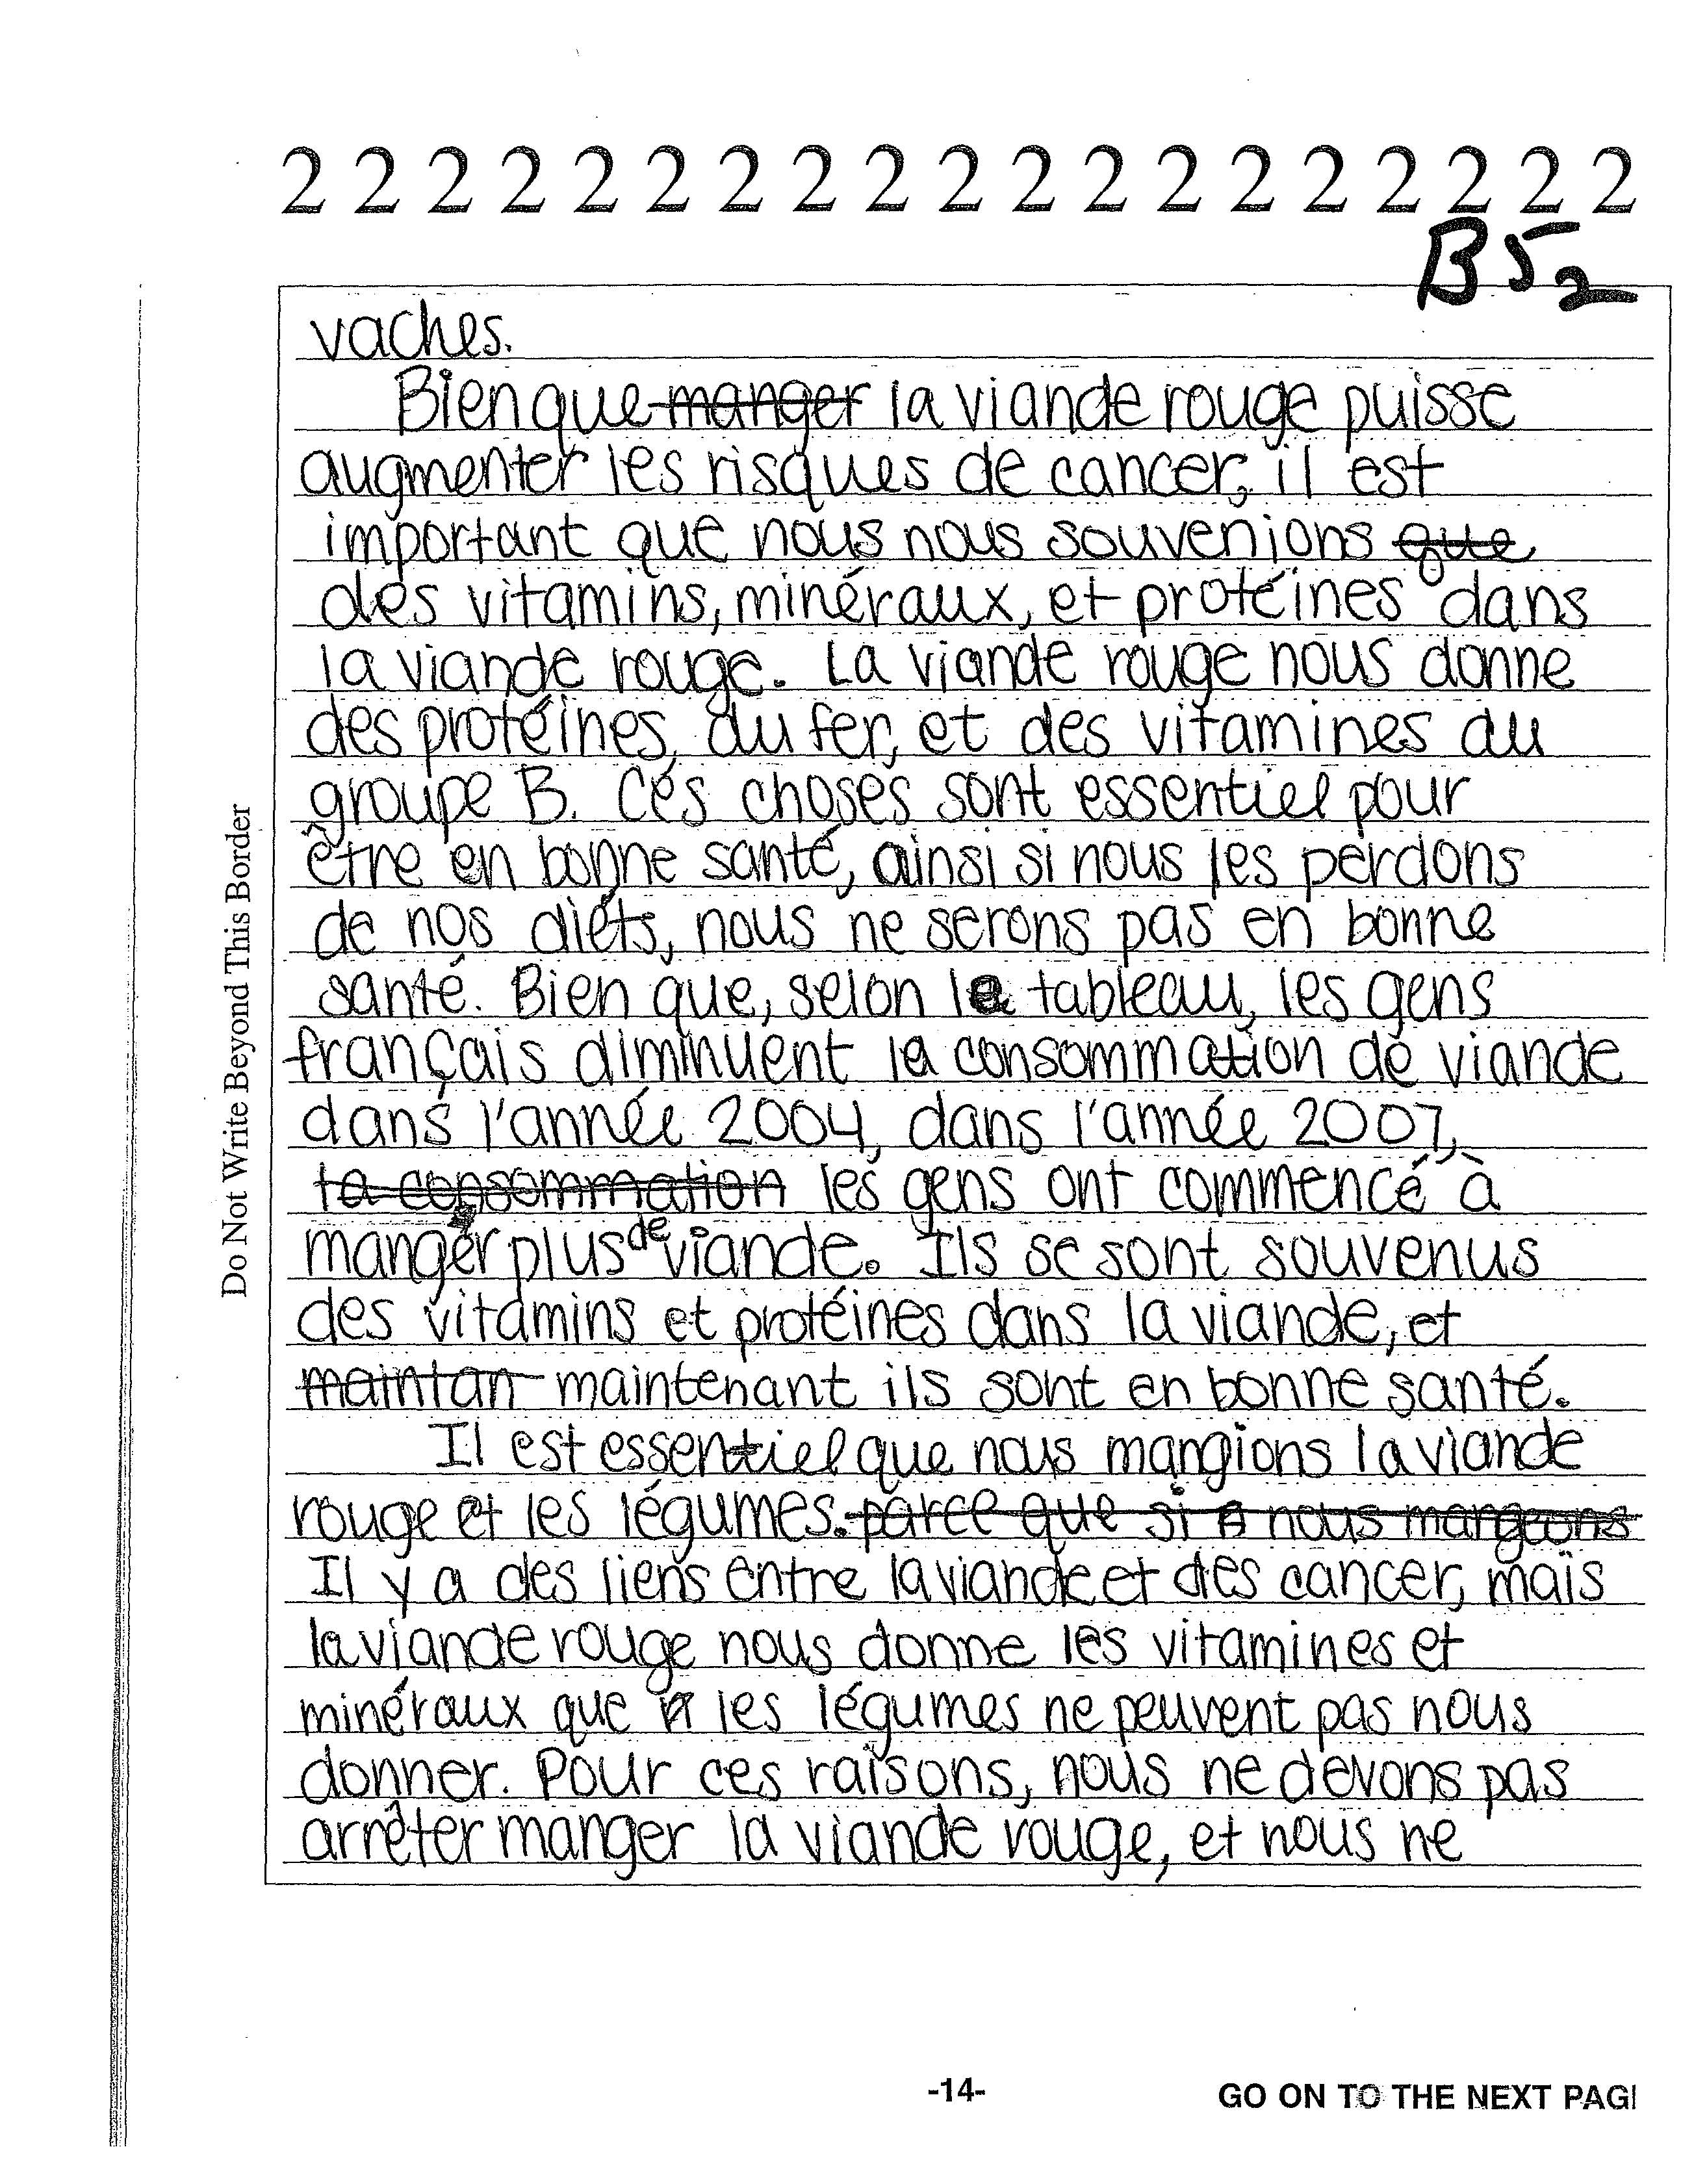 2 2 2 2 2 2 2 2 2 2 2 2 2 2 2 2 2 2 2
B5 2
vaches.
Bien que manger la viande rouge puisse
augmenter les risques de cancer, il est
important que nous nous souvenions que
des vitamins, minéraux, et protéines dans
la viande rouge. La viande rouge nous donne
des protéines, du fer, et des vitamines du
groupe B. Ces choses sont essentiel pour
être en bonne santé, ainsi si nous les perdons
de nos diéts, nous ne serons pas en bonne
santé. Bien que, selon le tableau, les gens
français diminuent la consommation de viande
dans l'année 2004, dans l'année 2007,
la consommation les gens ont commencé à
manger plus de viande. Ils se sont souvenus
des vitamins et protéines dans la viande, et
maintan maintenant ils sont en bonne santé.
Il est essentiel que nous mangions la viande
rouge et les légumes. parce que si nous mangeons
Il y a des liens entre la viande et des cancer, mais
la viande rouge nous donne les vitamines et
minéraux que les légumes ne peuvent pas nous
donner. Pour ces raisons, nous ne devons pas
arrêter manger la viande rouge, et nous ne
Do Not Write Beyond This Border
-14-
GO ON TO THE NEXT PAG